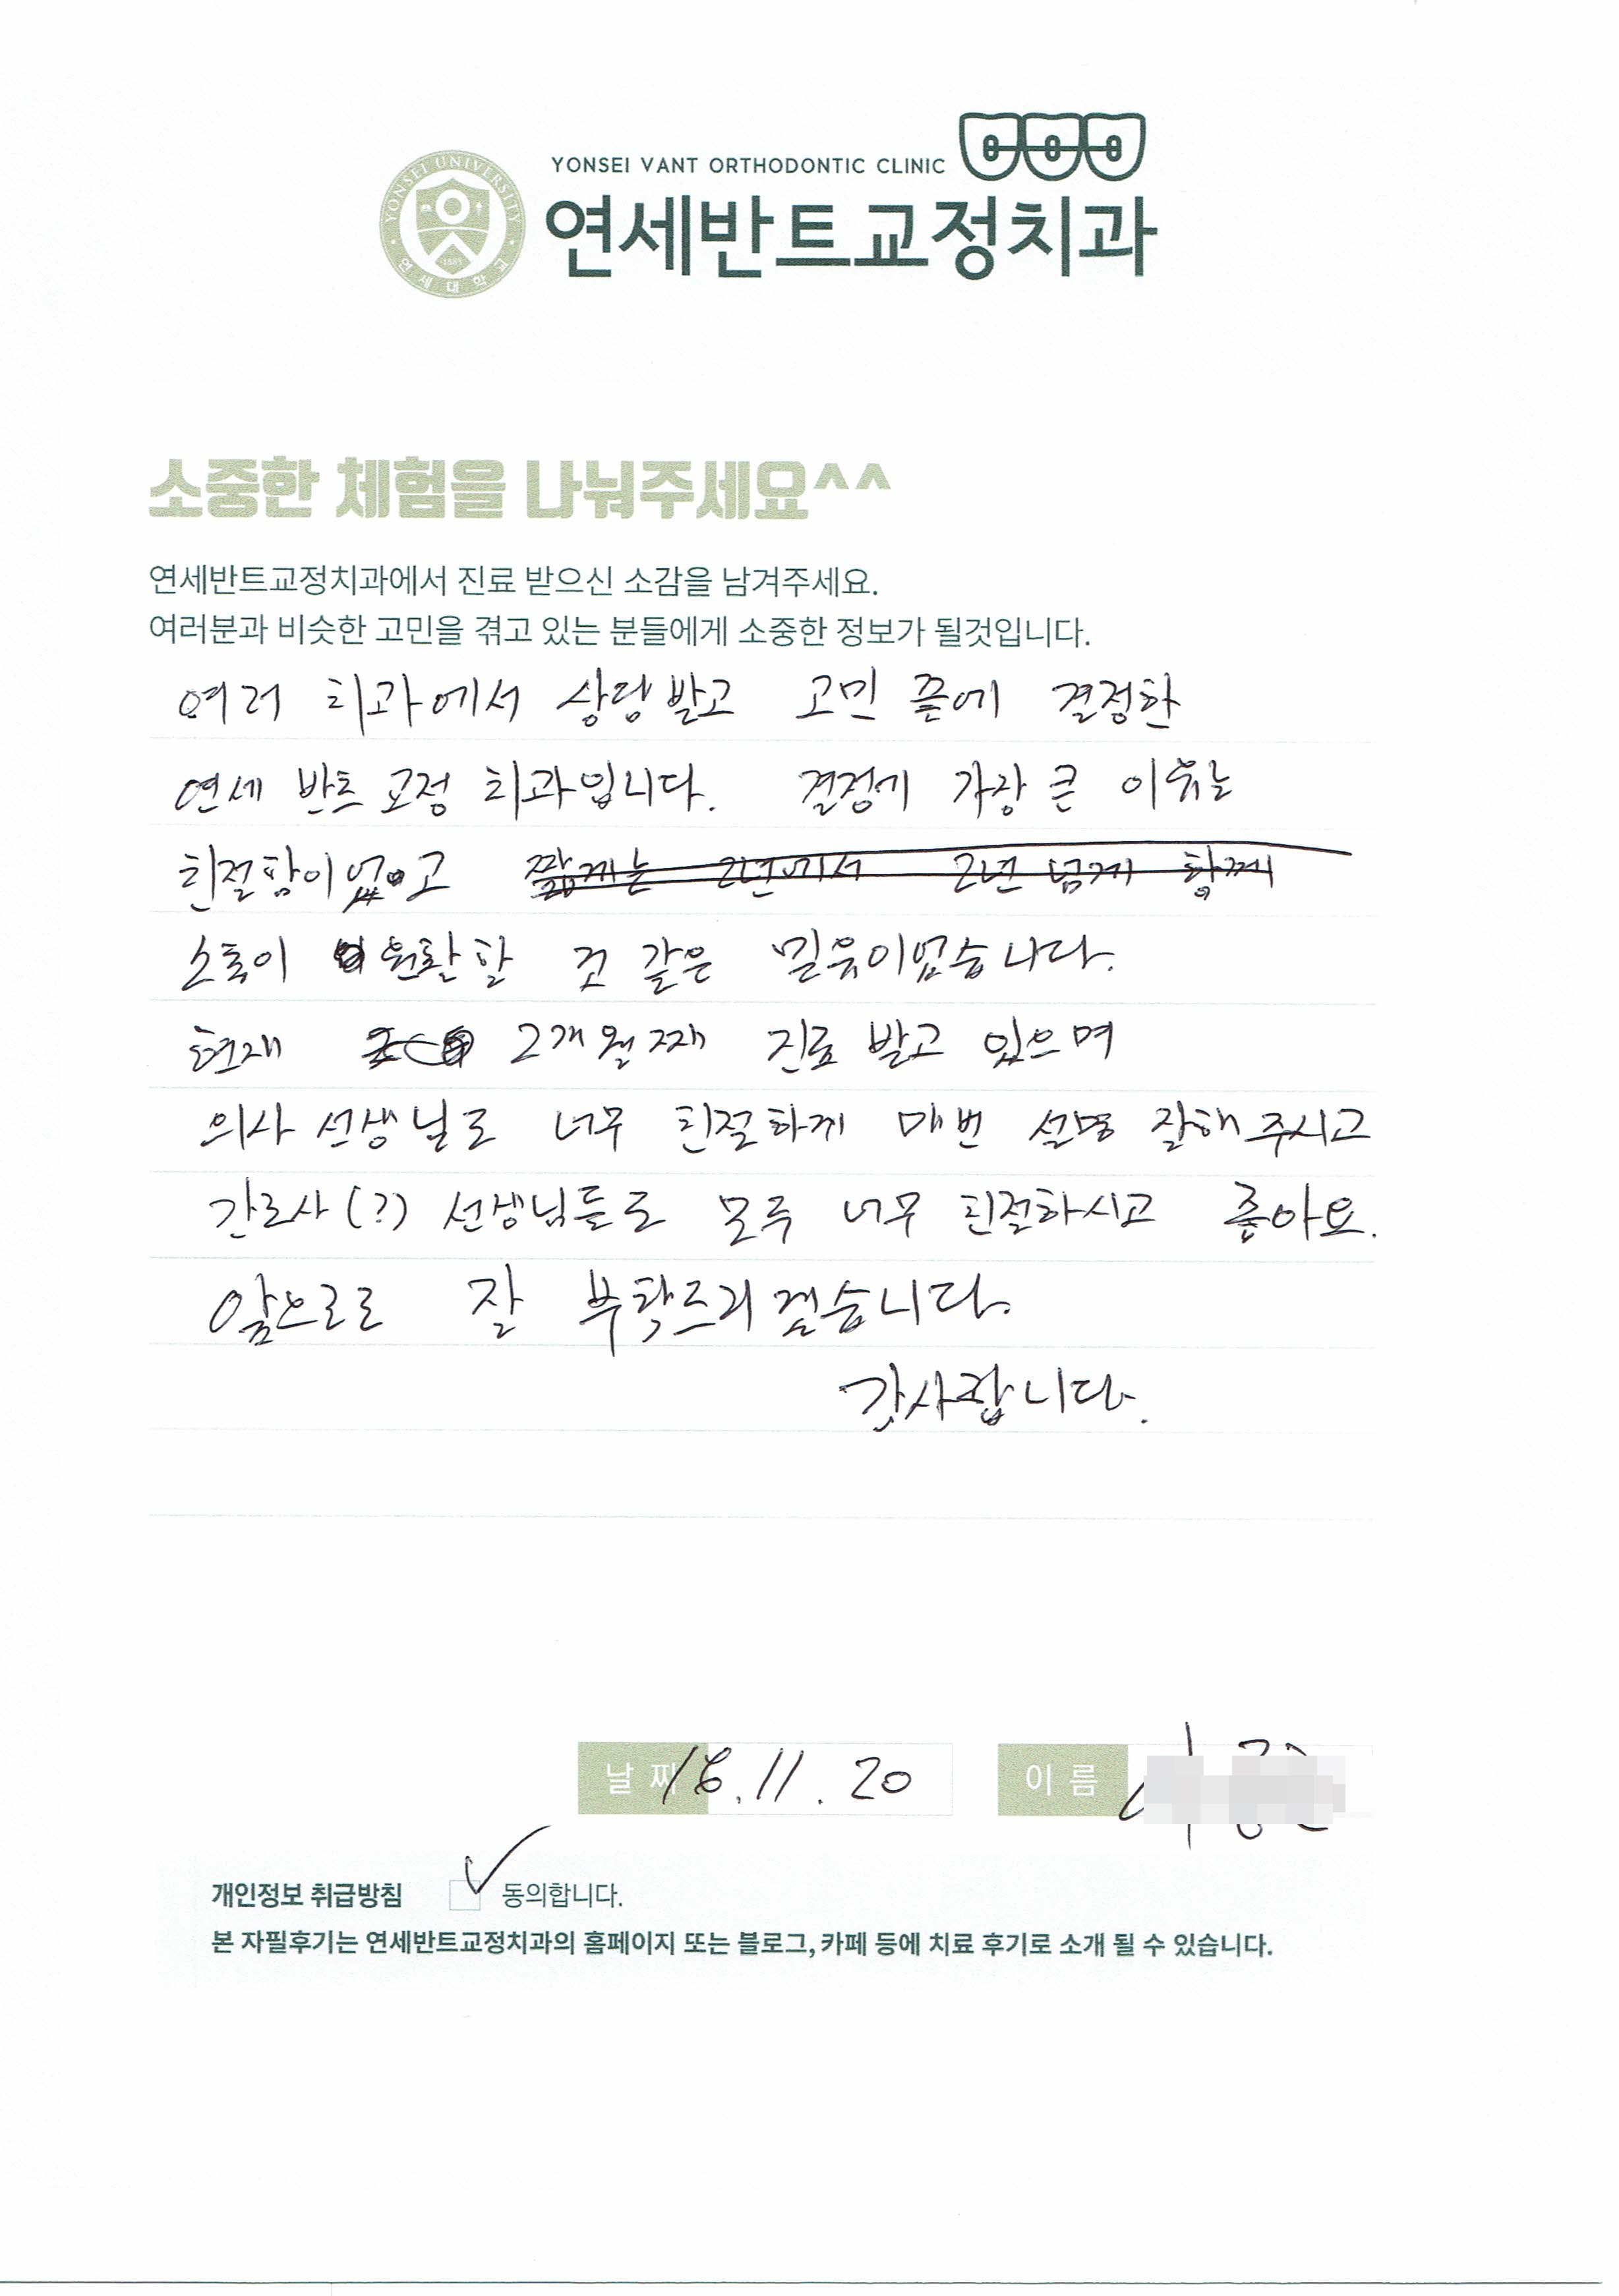 YONSEI VANT ORTHODONTIC CLINIC
YONSEI UNIVERSITY
1885
연세대학교
연세반트교정치과
소중한 체험을 나눠주세요^^
연세반트교정치과에서 진료 받으신 소감을 남겨주세요.
여러분과 비슷한 고민을 겪고 있는 분들에게 소중한 정보가 될것입니다.
여러 치과에서 상담 받고 고민 끝에 결정한
연세 반트 교정 치과입니다. 결정에 가장 큰 이유는
친절함이었고 짧게는 2년에서 2년 넘게 함께
소통이 원활할 것 같은 믿음이었습니다.
현재 2개월째 진료 받고 있으며
의사 선생님도 너무 친절하게 매번 설명 잘해주시고
간호사(?) 선생님들도 모두 너무 친절하시고 좋아요.
앞으로도 잘 부탁드리겠습니다.
감사합니다.
날짜 18.11.20 이름
개인정보 취급방침 동의합니다.
본 자필후기는 연세반트교정치과의 홈페이지 또는 블로그, 카페 등에 치료 후기로 소개 될 수 있습니다.